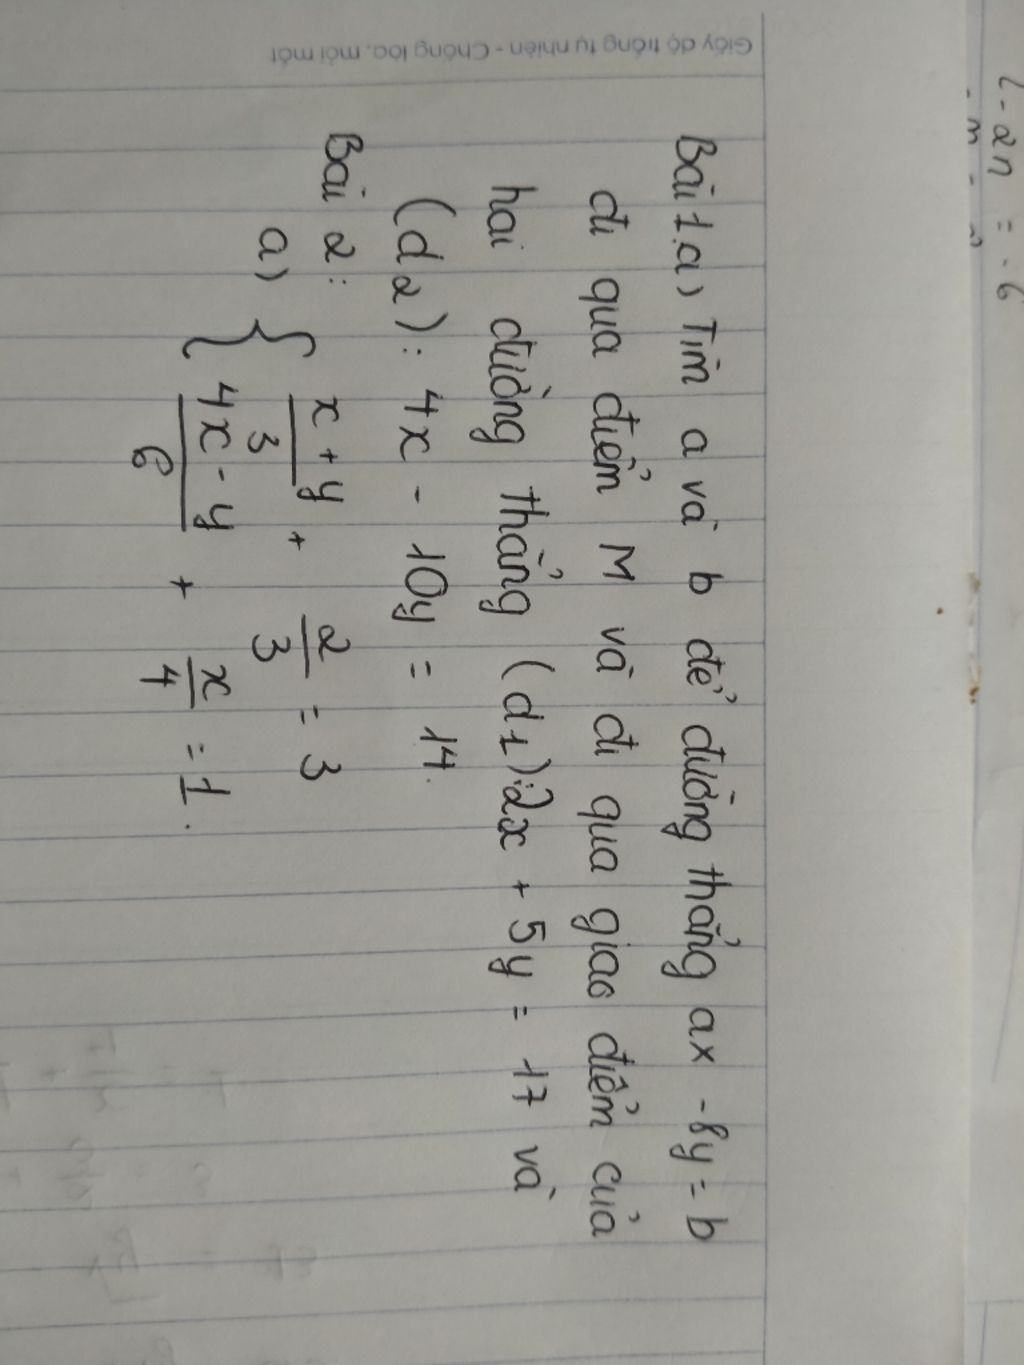 Giấy độ trắng tự nhiên - Chống lóa, mỏi mắt
Bài 1.a) Tìm a và b để đường thẳng ax - 8y = b
đi qua điểm M và đi qua giao điểm của
hai đường thẳng (d1):2x + 5y = 17 và
(d2): 4x - 10y = 14.
Bài 2:
a) { x + y / 3 + 2/3 = 3
4x - y / 6 + x/4 = 1.
- 2n = -6